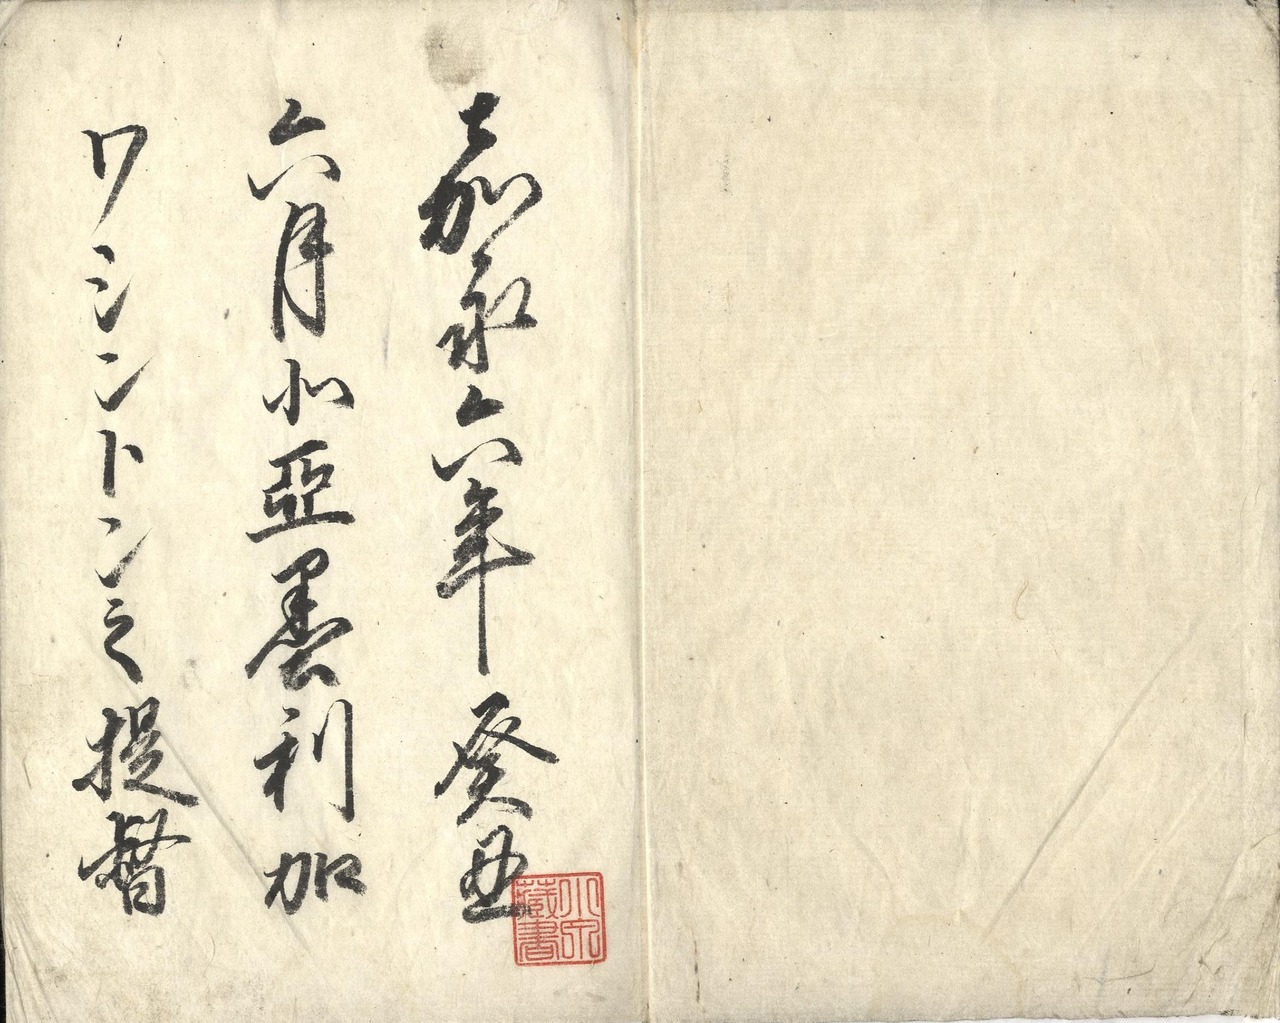 嘉永六年癸丑
六月北亞墨利加
ワシントン之提督
藏書